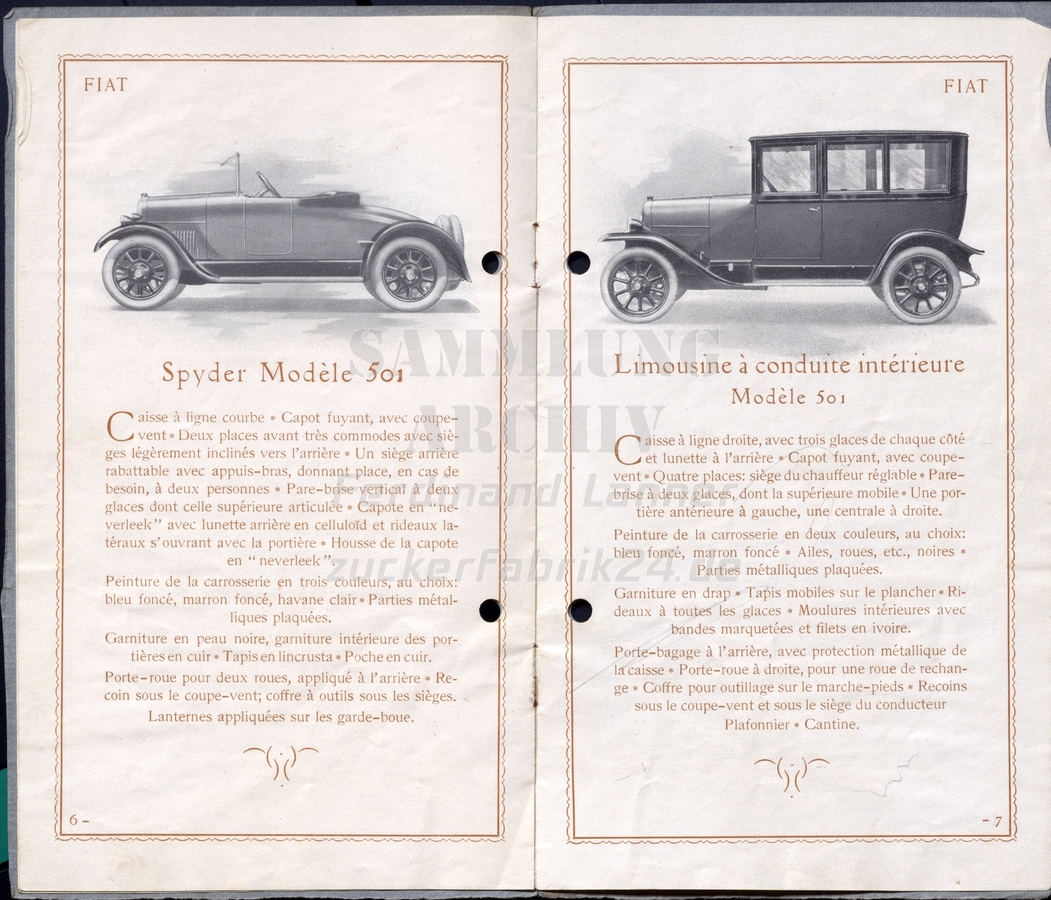 FIAT
Spyder Modèle 501
Caisse à ligne courbe * Capot fuyant, avec coupe-
vent * Deux places avant très commodes avec siè-
ges légèrement inclinés vers l'arrière * Un siège arrière
rabattable avec appuis-bras, donnant place, en cas de
besoin, à deux personnes * Pare-brise vertical à deux
glaces dont celle supérieure articulée * Capote en "ne-
verleek" avec lunette arrière en celluloïd et rideaux la-
téraux s'ouvrant avec la portière * Housse de la capote
en "neverleek".
Peinture de la carrosserie en trois couleurs, au choix:
bleu foncé, marron foncé, havane clair * Parties métal-
liques plaquées.
Garniture en peau noire, garniture intérieure des por-
tières en cuir * Tapis en lincrusta * Poche en cuir.
Porte-roue pour deux roues, appliqué à l'arrière * Re-
coin sous le coupe-vent; coffre à outils sous les sièges.
Lanternes appliquées sur les garde-boue.
6 -
FIAT
Limousine à conduite intérieure
Modèle 501
Caisse à ligne droite, avec trois glaces de chaque côté
et lunette à l'arrière * Capot fuyant, avec coupe-
vent * Quatre places: siège du chauffeur réglable * Pare-
brise à deux glaces, dont la supérieure mobile * Une por-
tière antérieure à gauche, une centrale à droite.
Peinture de la carrosserie en deux couleurs, au choix:
bleu foncé, marron foncé * Ailes, roues, etc., noires *
Parties métalliques plaquées.
Garniture en drap * Tapis mobiles sur le plancher * Ri-
deaux à toutes les glaces * Moulures intérieures avec
bandes marquetées et filets en ivoire.
Porte-bagage à l'arrière, avec protection métallique de
la caisse * Porte-roue à droite, pour une roue de rechan-
ge * Coffre pour outillage sur le marche-pieds * Recoins
sous le coupe-vent et sous le siège du conducteur
Plafonnier * Cantine.
- 7
SAMMLUNG
ARCHIV
Ferdinand Lanner
zuckerfabrik24.de